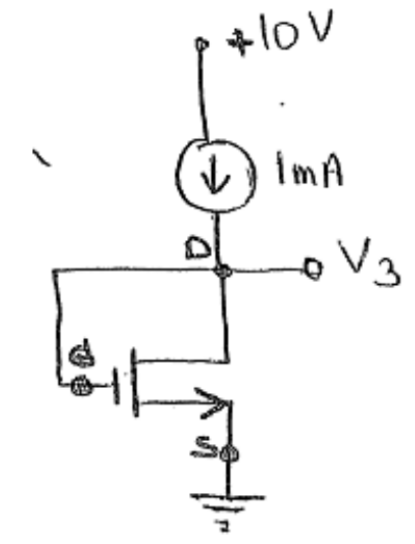 +10V
1mA
D
V3
G
S